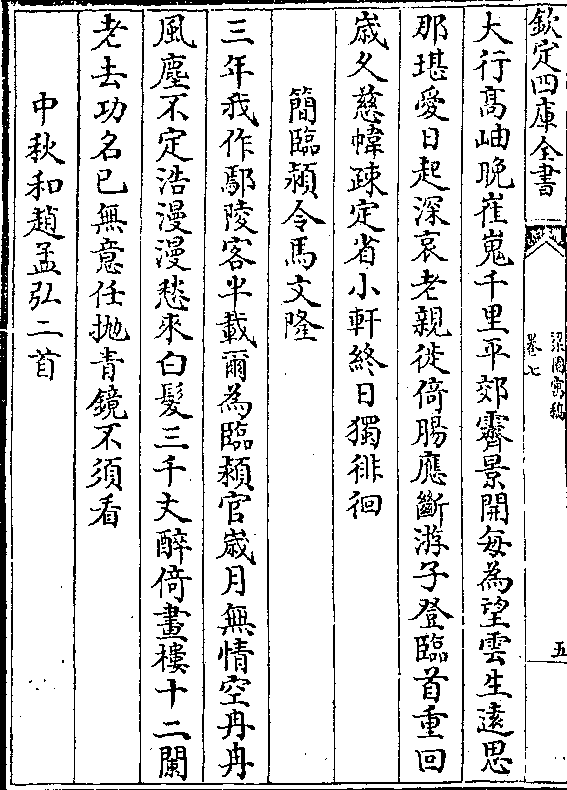 欽定四庫全書
梁園寓稿
卷七
五
大行髙岫晩崔嵬千里平郊霽景開每為望雲生遠思
那堪愛日起深哀老親徙倚腸應斷游子登臨首重回
歳久慈幃疎定省小軒終日獨徘徊
簡臨潁令馬文隆
三年我作鄢陵客半載爾為臨潁官歳月無情空冉冉
風塵不定浩漫漫愁來白髮三千丈醉倚畫樓十二闌
老去功名已無意任抛青鏡不須看
中秋和趙孟弘二首